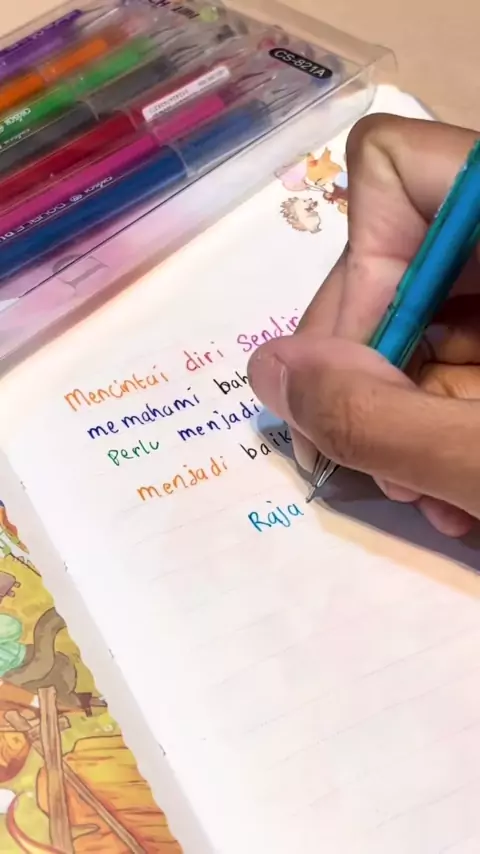 CS-821A
Mencintai diri sendiri
memahami bah
perlu menjadi
menjadi baik
Raja